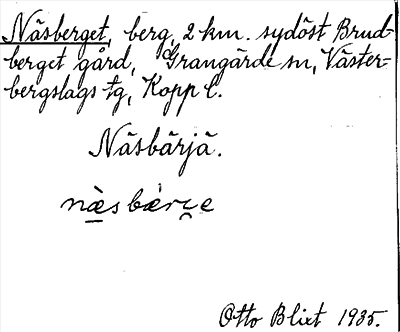 Näsberget, berg, 2 km. sydöst Brud-
berget gård, Grangärde sn, Väster-
bergslags tg, Kopp l.
Näsbärjä.
næ̀sbærɕe
Otto Blixt 1935.